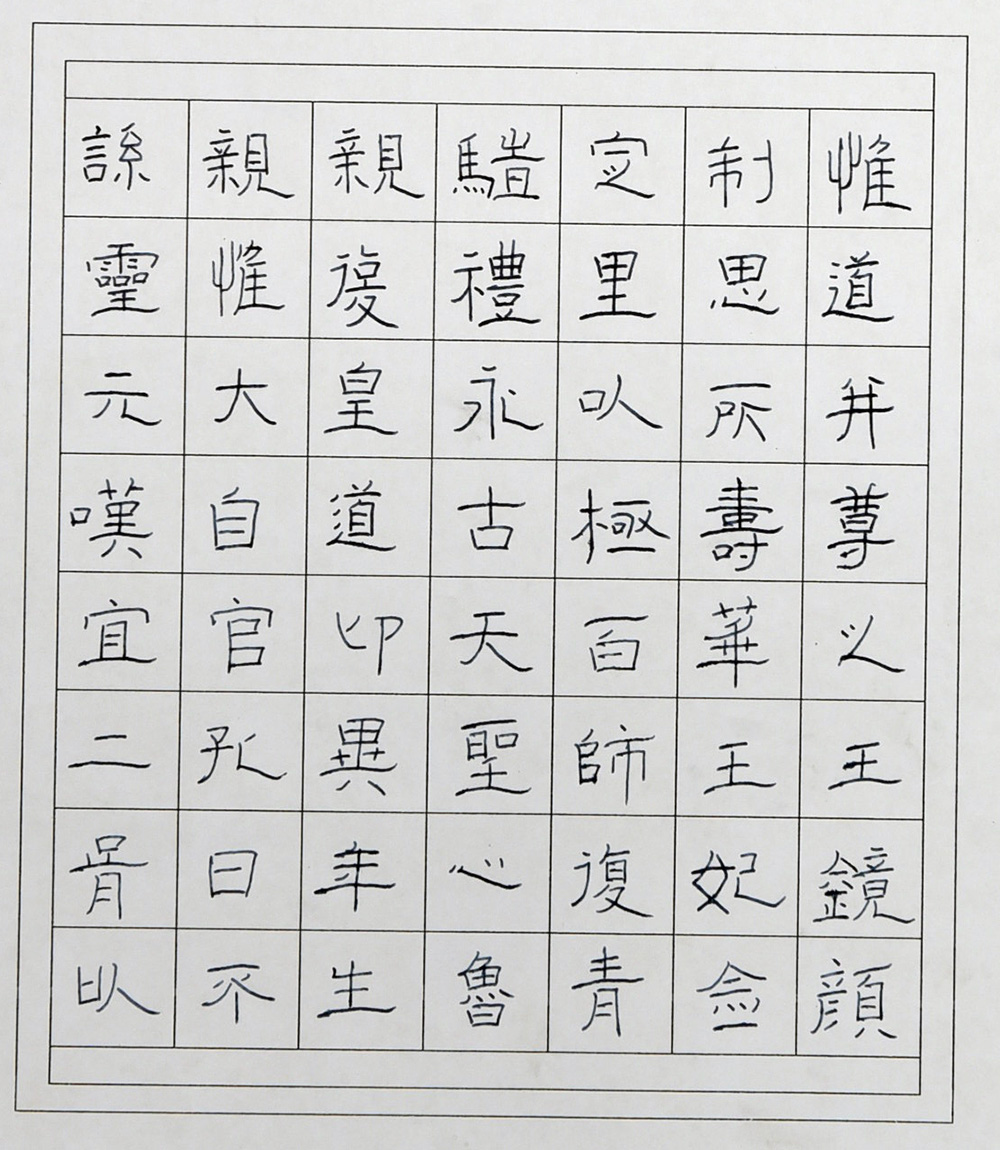 惟道并尊王鏡顔
制思所壽華王妃
定里以極百師復青
禮永古天聖心魯
親復皇道卬異年生
親惟大自官孔曰不
靈元嘆宜二胥以